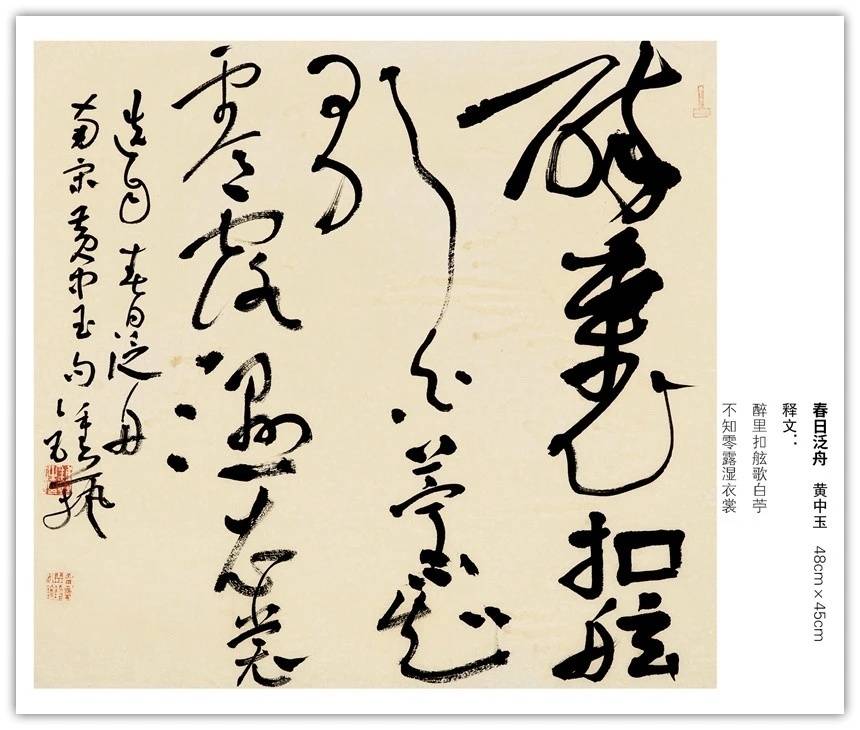 春日泛舟 黄中玉 48cm×45cm
释文：
醉里扣舷歌白苧
不知零露湿衣裳
醉裏扣舷
零露濕衣裳
春日泛舟
南宋黄中玉句